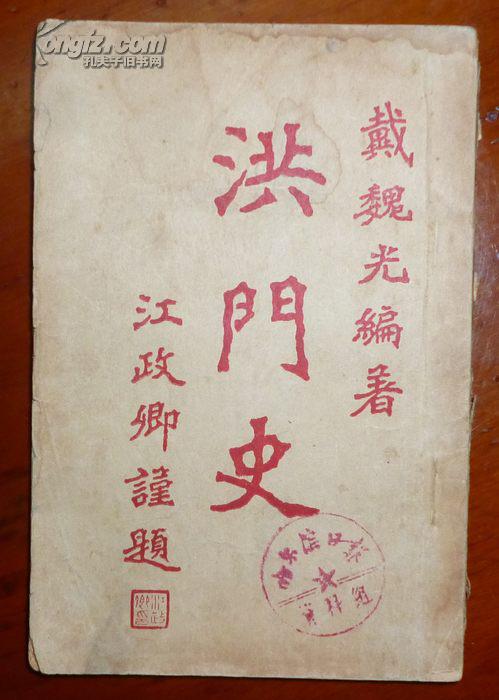 kongfz.com
孔夫子旧书网
戴魏光編著
洪門史
江政卿謹題
江政卿印